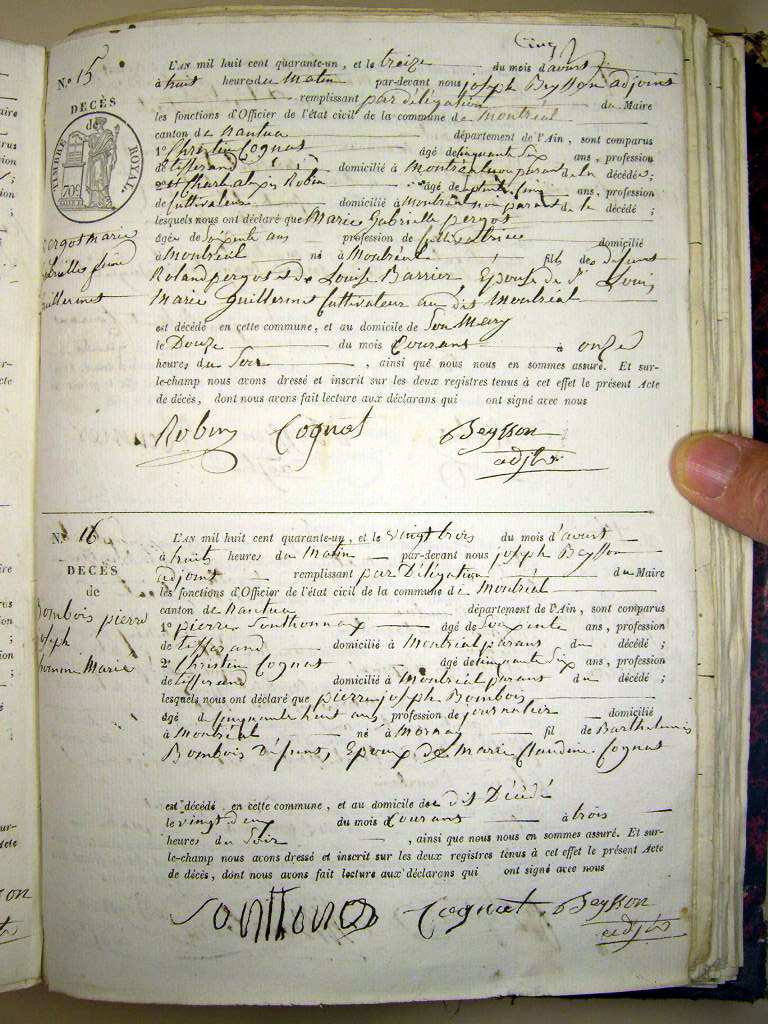 Cinq
N.o 15
DÉCÈS
de
TIMBRE ROYAL.
70c
pergot marie
gabrielle feme
guillermet
L'AN mil huit cent quarante-un, et le treize du mois d'avust
à huit heures du Matin par-devant nous joseph Beysson adjoint
remplissant par délégation du Maire
les fonctions d'Officier de l'état civil de la commune de Montréal
canton de Nantua département de l'Ain, sont comparus
1o Christin Cognat âgé de cinquante six ans, profession
de tisserand domicilié à Montréal non parant de la décédée;
2o et Robin âgé de ans, profession
de Cultivateur domicilié à Montréal non parant de la décédé;
lesquels nous ont déclaré que Marie Gabrielle pergot
âgée de Soixente ans profession de Cultivatrice domicilié
à Montréal né à Montréal fils de defunt
Roland pergot et de Louise Barrier, Epouse de Sr Louis
Marie Guillermet Cultivateur au dit Montréal
est décédé en cette commune, et au domicile de Son Mary
le Douze du mois Courant à onze
heures du Soir, ainsi que nous nous en sommes assuré. Et sur-
le-champ nous avons dressé et inscrit sur les deux registres tenus à cet effet le présent Acte
de décès, dont nous avons fait lecture aux déclarans qui ont signé avec nous
Robin Cognat Beysson
adjt
N.o 16
DÉCÈS
de
Bombois pierre
joseph
homme Marié
L'AN mil huit cent quarante-un, et le vingt trois du mois d'avust
à huit heures du Matin par-devant nous joseph Beysson
adjoint remplissant par Délégation du Maire
les fonctions d'Officier de l'état civil de la commune de Montréal
canton de Nantua département de l'Ain, sont comparus
1o pierre Sonthonnax âgé de Soixente ans, profession
de tisserand domicilié à Montréal parant du décédé;
2o Christin Cognat âgé de cinquante Six ans, profession
de tisserand domicilié à Montréal parant du décédé;
lesquels nous ont déclaré que pierre joseph Bombois
âgé de cinquante huit ans profession de journalier domicilié
à Montréal né à Mornay fil de Barthelemis
Bombois Défunt, Epoux de Marie Claudine Cognat
est décédé en cette commune, et au domicile du dit Décédé
le vingt deux du mois Courant à trois
heures du Soir, ainsi que nous nous en sommes assuré. Et sur-
le-champ nous avons dressé et inscrit sur les deux registres tenus à cet effet le présent Acte
de décès, dont nous avons fait lecture aux déclarans qui ont signé avec nous
Cognat Beysson
adjt